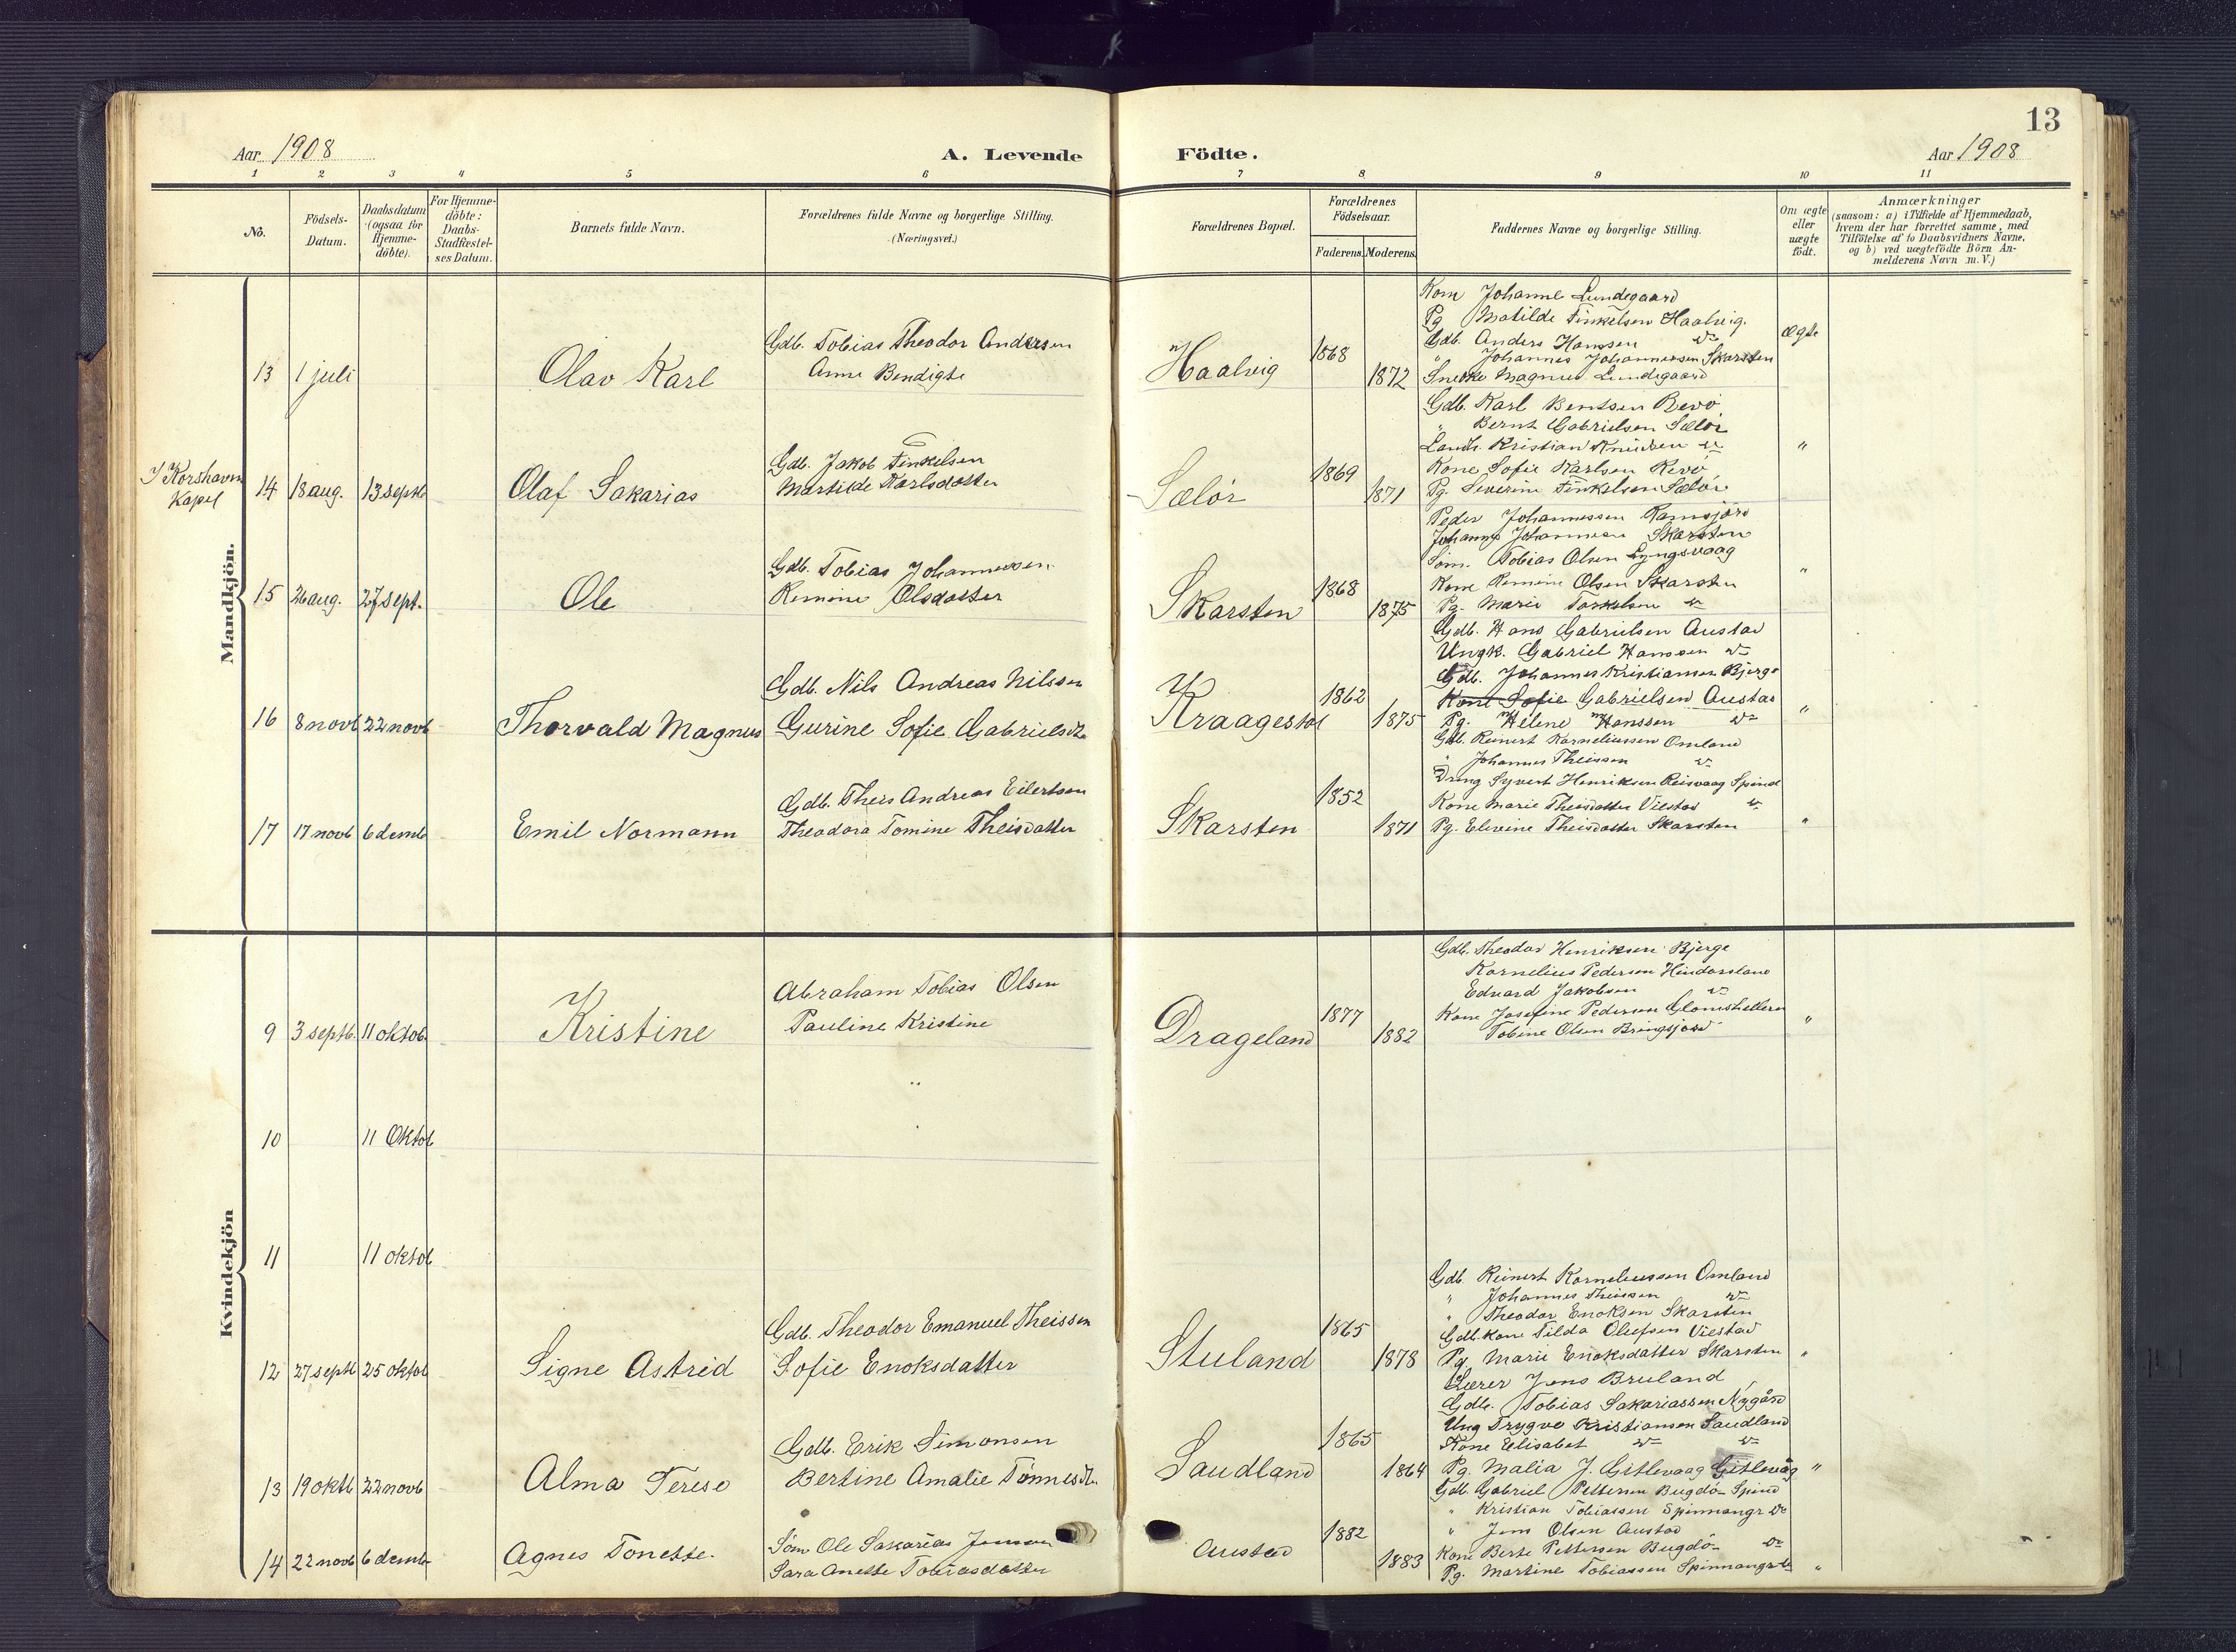 13
Aar 1908
A. Levende
Födte.
Aar 1908
1 2 3 4 5 6 7 8 9 10 11
No.
Födsels-Datum.
Daabsdatum (ogsaa for Hjemme-döbte).
For Hjemme-döbte: Daabs-Stadfæstel-ses Datum.
Barnets fulde Navn.
Forældrenes fulde Navne og borgerlige Stilling. (Næringsvei.)
Forældrenes Bopæl.
Forældrenes Födselsaar.
Faderens. Moderens.
Faddernes Navne og borgerlige Stilling.
Om ægte eller uægte födt.
Anmærkninger
(saasom: a) i Tilfælde af Hjemmedaab, hvem der har forrettet samme, med Tilföielse af to Daabsvidners Navne, og b) ved uægtefödte Börn An-melderens Navn m. V.)
Mandkjön.
13 1 juli
Olav Karl
Gdb. Tobias Theodor Andersen
Anne Bendigte
Haalvig
1868
1872
Kone Johanne Lundegaard
Pg Matilde Finkelsen Haalvig.
Gdb. Anders Hanssen do
" Johannes Johannessen Skarsten
Snedke Magnus Lundegaard
ægte
I Korshavn
Kapel
14 18 aug. 13 septb
Olaf Sakarias
Gdb. Jakob Finkelsen
Martilde Karlsdatter
Sælör
1869
1871
Gdb. Karl Bentsen Revö
" Bernt Gabrielsen Sælör
Landh. Kristian Knudsen do
Kone Sofie Karlsen Revö
Pg. Severine Finkelsen Sælör
"
15 26 aug. 27 sept.
Ole
Gdb. Tobias Johannessen
Remine Olsdatter
Skarsten
1868
1875
Peder Johannessen Ramsjord
Johannes Johannessen Skarsten
Söm. Tobias Olsen Lyngsvaag
Kone Remine Olsen Skarsten
Pg. Marie Torkelsen do
"
16 8 novb 22 novb
Thorvald Magnus
Gdb. Nils Andreas Nilsen
Gurine Sofie Gabrielsdtr
Kraagestol
1862
1875
Gdb. Hans Gabrielsen Austad
Ungk. Gabriel Hanssen do
Gdb. Johannes Kristiansen Bjerge
Kone Sofie Gabrielsen Austad
Pg. Helene Hanssen do
"
17 17 novb 6 demb
Emil Normann
Gdb. Theis Andreas Eilertsen
Theodora Tomine Theisdatter
Skarsten
1852
1871
Gdb. Reinert Korneliussen Omland
" Johannes Theissen do
Dreng Syvert Henriksen Reisvaag Spind
Kone Marie Theisdatter Viestad do
Pg. Elevine Theisdatter Skarsten
"
Kvindekjön
9 3 septb. 11 oktob.
Kristine
Abraham Tobias Olsen
Pauline Kristine
Drageland
1877
1882
Gdb. Theodor Henriksen Bjerge
Kornelius Pedersen Hindarsland
Edvard Jakobsen do
Kone Josefine Pedersen Glomshelleren
Tobine Olsen Bringsjord
"
10 11 Oktob
11 11 oktob
12 27 septb 25 oktob
Signe Astrid
Gdb. Theodor Emanuel Theissen
Sofie Enoksdatter
Stuland
1865
1878
Gdb. Reinert Korneliussen Omland
" Johannes Theissen do
" Theodor Enoksen Skarsten
Gdb. kone Tilda Olufsen Viestad
Pg. Marie Enoksdatter Skarsten
"
13 19 oktb 22 novb
Alma Terese
Gdb. Erik Simonsen
Bertine Amalie Tönnesdtr.
Saudland
1865
1864
Lærer Jens Bruland
Gdb. Tobias Sakariassen Nygård
Ung Trygve Kristiansen Saudland
Kone Elisabet do do
Pg. Malia J. Gitlevaag Gitlevåg
"
14 22 novb 6 demb
Agnes Tonette.
Söm Ole Sakarias Jensen
Sara Anette Tobiasdatter
Austad
1882
1883
Gdb. Gabriel Pettersen Bugdö Spind
" Kristian Tobiassen Spinnangr do
" Jens Olsen Austad
Kone Berte Pettersen Bugdö do
Pg. Martine Tobiassen Spinnangr do
"